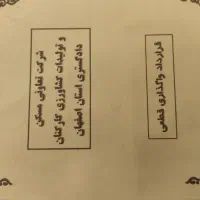 قرارداد واگذاری قطعی
شرکت تعاونی مسکن
و تولیدات کشاورزی کارکنان
دادگستری استان اصفهان